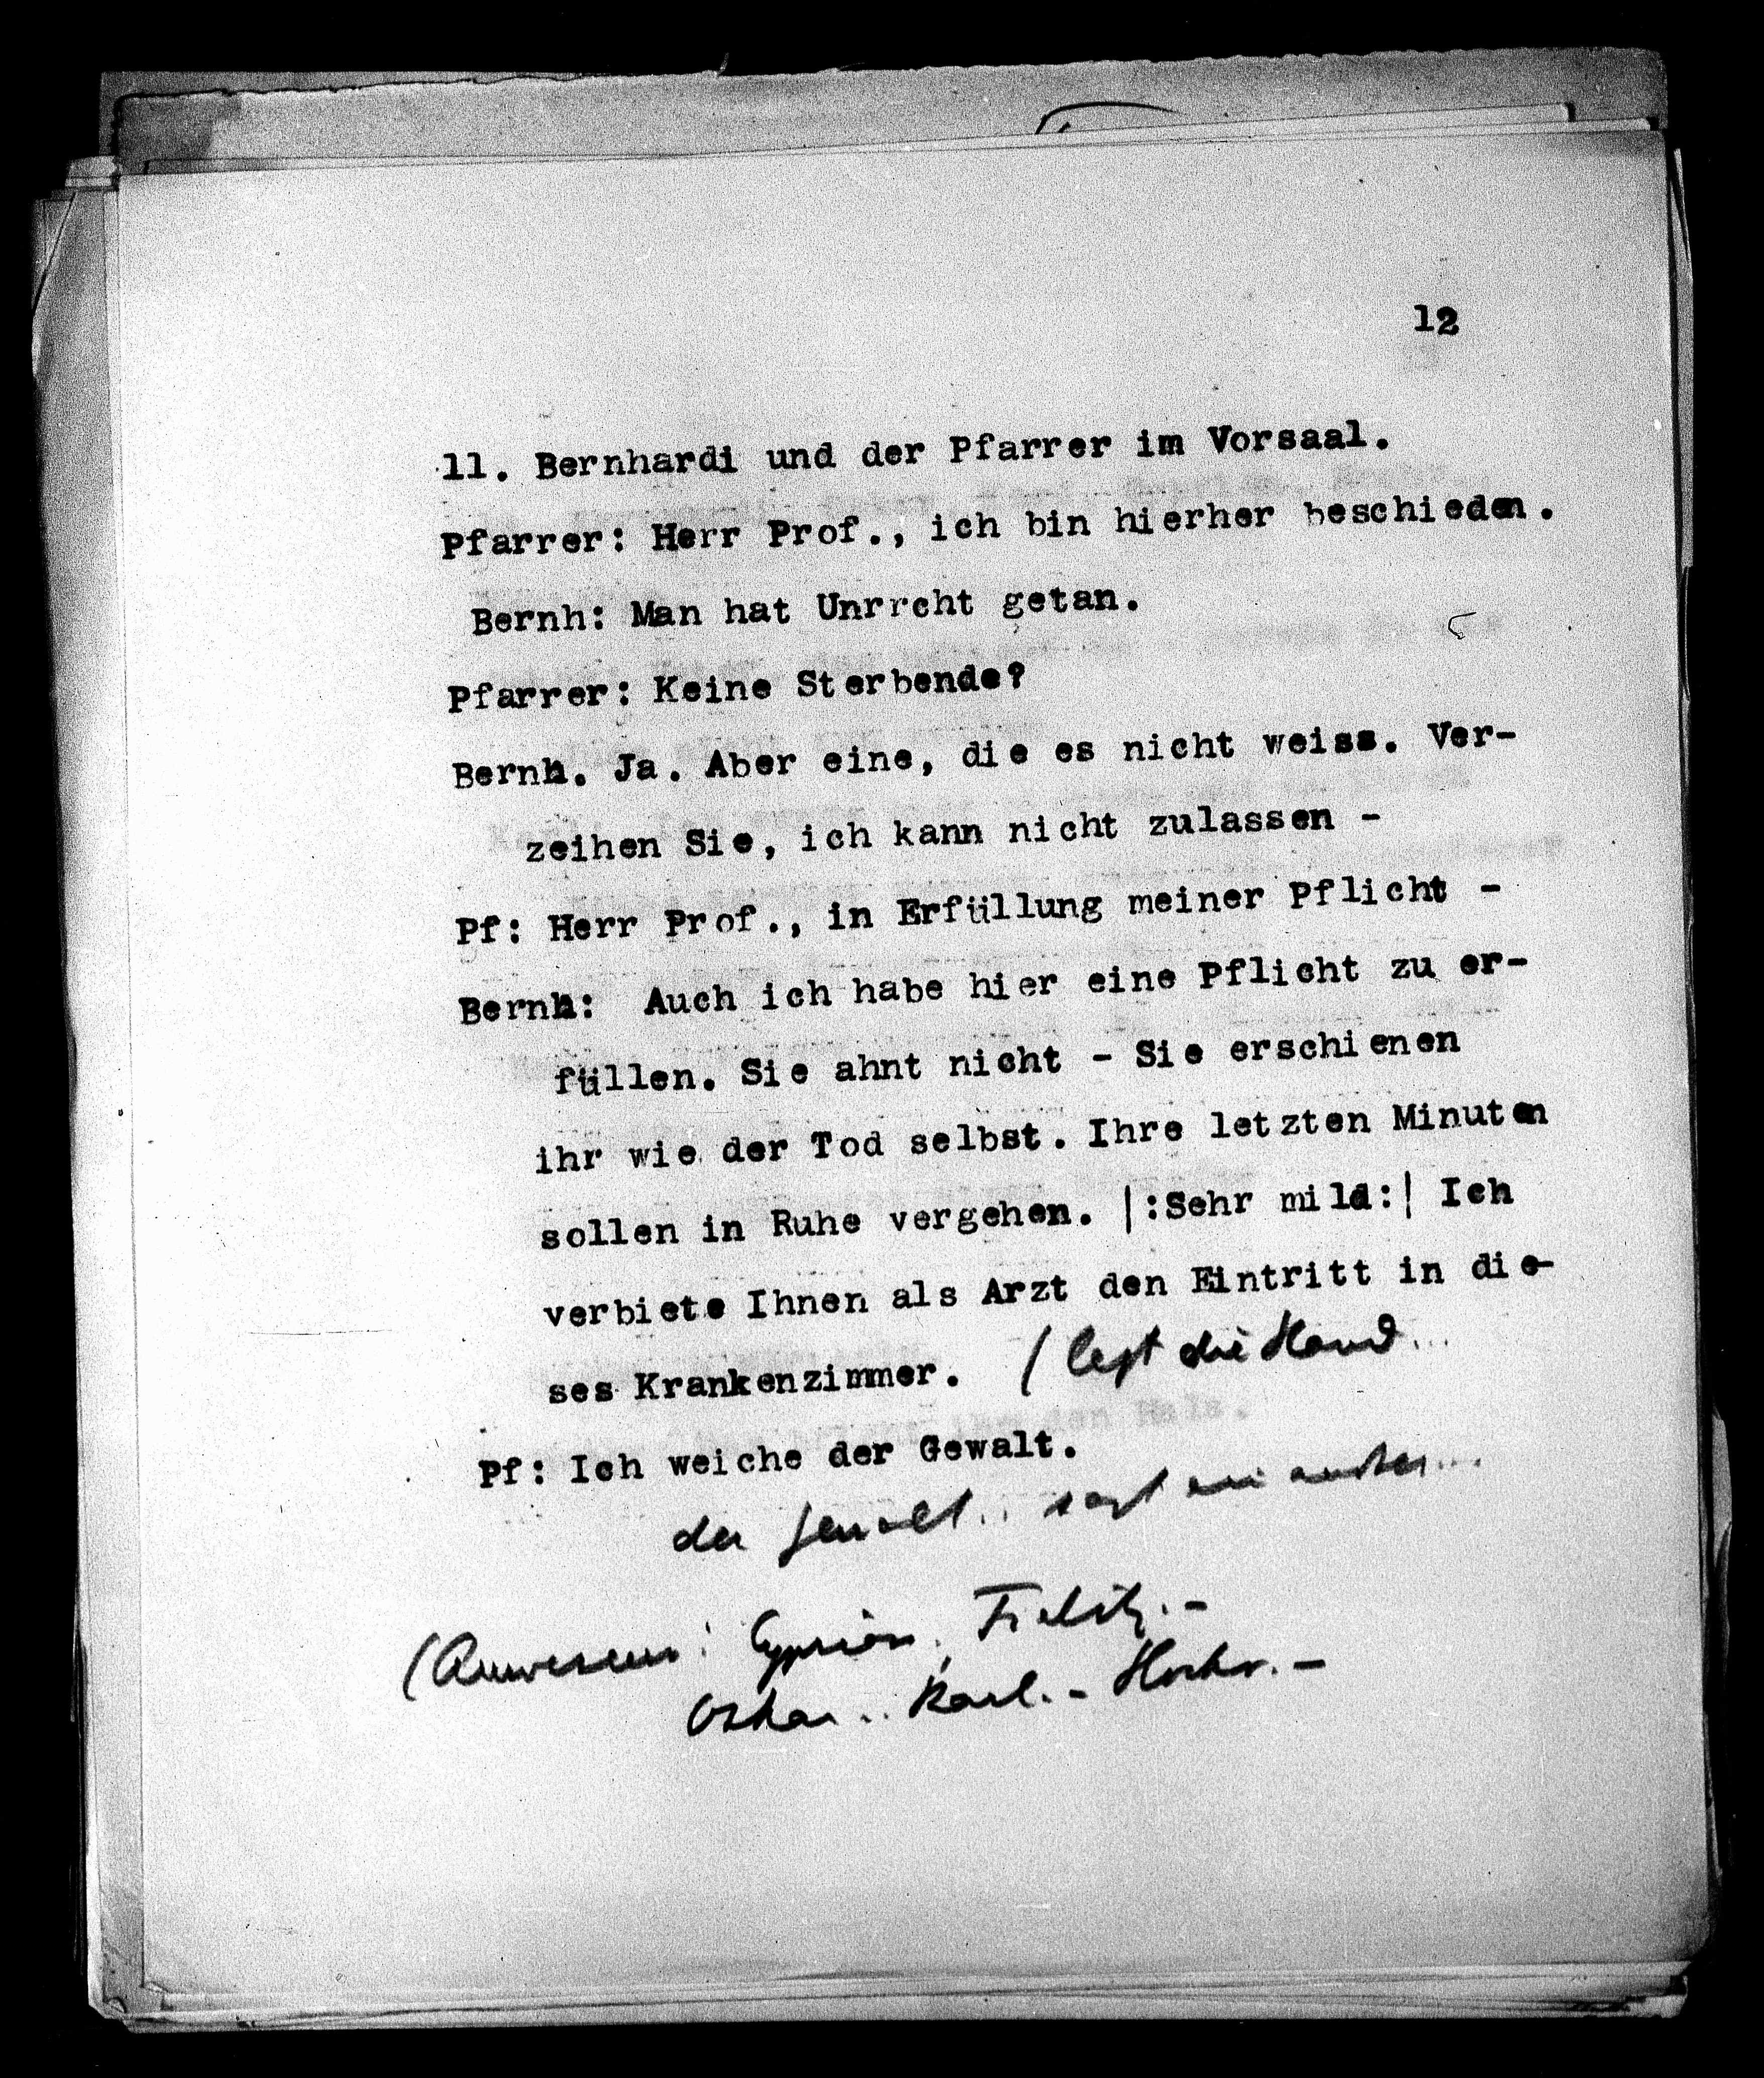 12
11. Bernhardi und der Pfarrer im Vorsaal.
Pfarrer: Herr Prof., ich bin hierher beschieden.
Bernh: Man hat Unrrcht getan.
Pfarrer: Keine Sterbende?
Bernh. Ja. Aber eine, die es nicht weiss. Ver-
zeihen Sie, ich kann nicht zulassen -
Pf: Herr Prof., in Erfüllung meiner Pflicht -
Bernh: Auch ich habe hier eine Pflicht zu er-
füllen. Sie ahnt nicht - Sie erschienen
ihr wie der Tod selbst. Ihre letzten Minuten
sollen in Ruhe vergehen. |:Sehr mild:| Ich
verbiete Ihnen als Arzt den Eintritt in die-
ses Krankenzimmer. (legt die Hand...
Pf: Ich weiche der Gewalt.
der Gewalt.. sagt ein
(Anwesend: Cyprian, Filitz.-
Oskar.. Karl.-